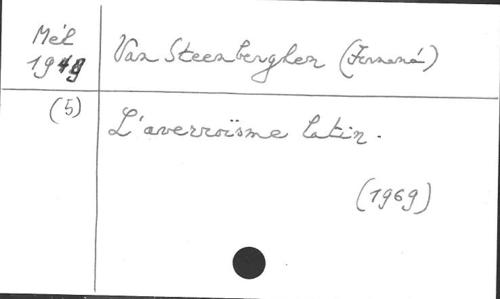 Mél
Van Steenberghen (Fernand)
(5)
L'averroïsme latin.
(1969)